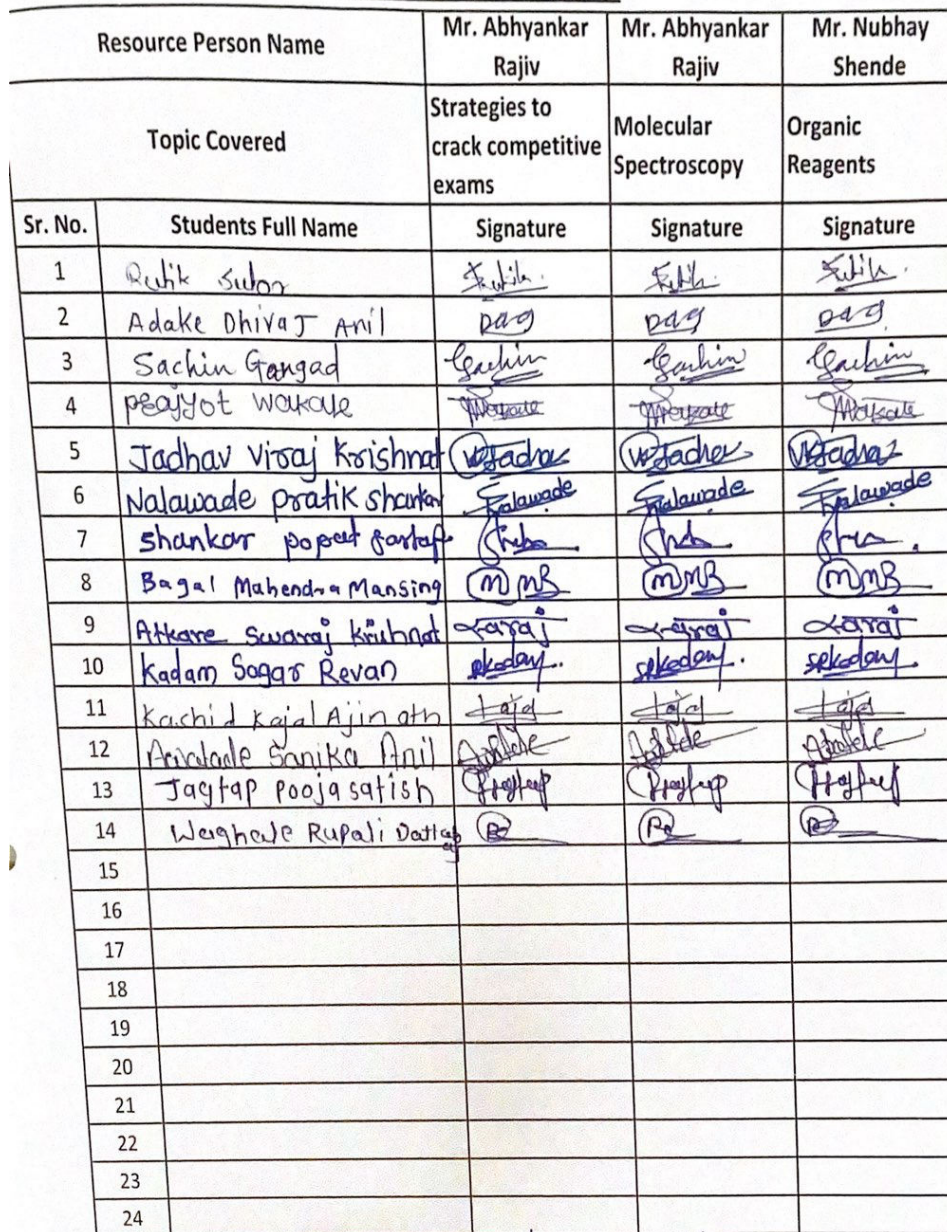 Resource Person Name Mr. Abhyankar Rajiv Mr. Abhyankar Rajiv Mr. Nubhay Shende
Topic Covered Strategies to crack competitive exams Molecular Spectroscopy Organic Reagents
Sr. No. Students Full Name Signature Signature Signature
1 Rutik
2 Adake Dhiraj Anil DAG DAG DAG
3 Sachin Gangad Sachin Sachin Sachin
4 Wakale
5 Jadhav Viraj Krishnat VKJadhav VKJadhav VKJadhav
6 Nalawade pratik shankar Nalawade Nalawade Nalawade
7 Shankar popat
8 Bagal Mahendra Mansing MMB MMB MMB
9 Atkare Swaraj Krishnat
10 Kadam Sagar Revan
11 Kachid Kajal Ajinath Kajal Kajal Kajal
12 Sanika Anil
13 Jagtap pooja satish
14 Rupali
15
16
17
18
19
20
21
22
23
24